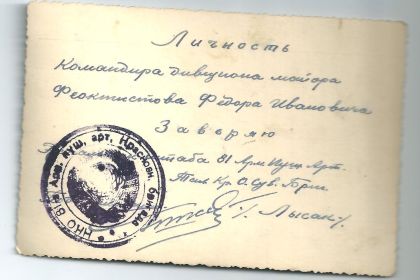 Личность
Командира дивизиона майора
Феоктистова Фёдора Ивановича
Заверяю
штаба 81 Арм. Пуш. Арт.
Кр. О. Сув. Бриг
Лысак
НКО 81-я Арм. пуш. арт. Краснозн. бригада